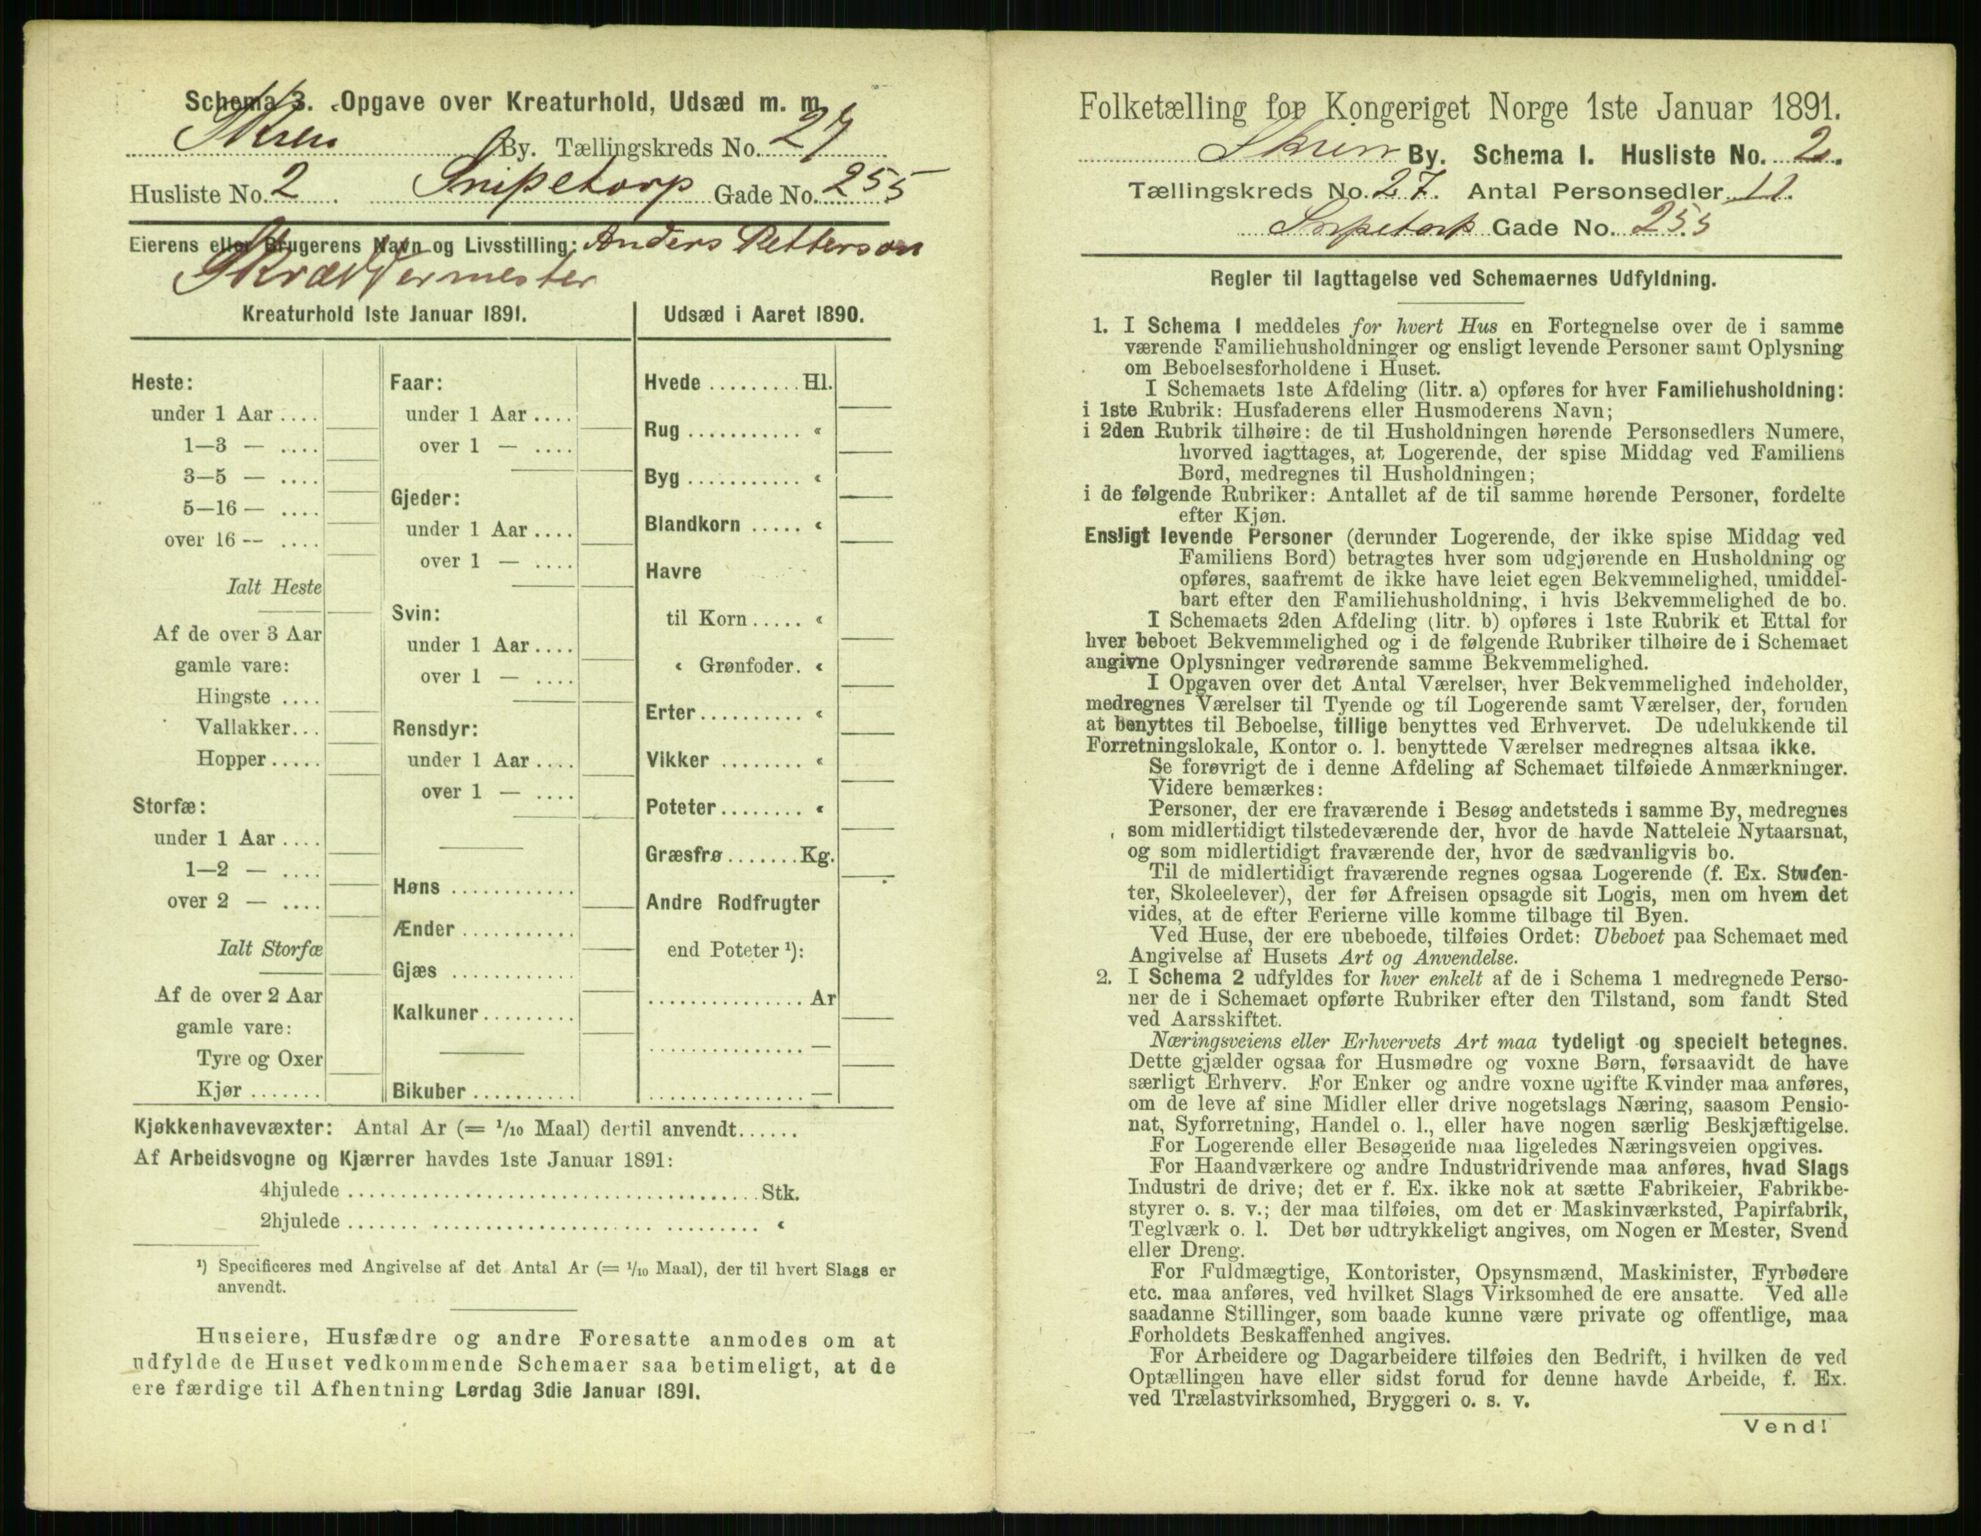 Schema 3. Opgave over Kreaturhold, Udsæd m. m.
Skien By. Tællingskreds No. 27
Husliste No. 2 Snipetorp Gade No. 255
Eierens eller Brugerens Navn og Livsstilling: Anders Petterson
Skræddermester
Kreaturhold 1ste Januar 1891.
Heste:
under 1 Aar....
1—3 — ....
3—5 — ....
5—16 — ....
over 16 -- ....
Ialt Heste
Af de over 3 Aar
gamle vare:
Hingste ....
Vallakker...
Hopper.....
Storfæ:
under 1 Aar....
1—2 — ....
over 2 — ....
Ialt Storfæ
Af de over 2 Aar
gamle vare:
Tyre og Oxer
Kjør.......
Faar:
under 1 Aar....
over 1 — ....
Gjeder:
under 1 Aar....
over 1 — ....
Svin:
under 1 Aar....
over 1 — ....
Rensdyr:
under 1 Aar....
over 1 — ....
Høns............
Ænder...........
Gjæs............
Kalkuner.........
Bikuber..........
Udsæd i Aaret 1890.
Hvede.........Hl.
Rug........... «
Byg........... «
Blandkorn..... «
Havre
til Korn..... «
« Grønfoder. «
Erter......... «
Vikker........ «
Poteter........ «
Græsfrø.......Kg.
Andre Rodfrugter
end Poteter ¹):
...............Ar
............... —
............... —
Kjøkkenhavevæxter: Antal Ar (= 1/10 Maal) dertil anvendt......
Af Arbeidsvogne og Kjærrer havdes 1ste Januar 1891:
4hjulede........................................Stk.
2hjulede........................................ «
¹) Specificeres med Angivelse af det Antal Ar (= 1/10 Maal), der til hvert Slags er
anvendt.
Huseiere, Husfædre og andre Foresatte anmodes om at
udfylde de Huset vedkommende Schemaer saa betimeligt, at de
ere færdige til Afhentning Lørdag 3die Januar 1891.
Folketælling for Kongeriget Norge 1ste Januar 1891.
Skien By. Schema I. Husliste No. 2.
Tællingskreds No. 27. Antal Personsedler 11.
Snipetorp Gade No. 255
Regler til Iagttagelse ved Schemaernes Udfyldning.
1. I Schema 1 meddeles for hvert Hus en Fortegnelse over de i samme
værende Familiehusholdninger og ensligt levende Personer samt Oplysning
om Beboelsesforholdene i Huset.
I Schemaets 1ste Afdeling (litr. a) opføres for hver Familiehusholdning:
i 1ste Rubrik: Husfaderens eller Husmoderens Navn;
i 2den Rubrik tilhøire: de til Husholdningen hørende Personsedlers Numere,
hvorved iagttages, at Logerende, der spise Middag ved Familiens
Bord, medregnes til Husholdningen;
i de følgende Rubriker: Antallet af de til samme hørende Personer, fordelte
efter Kjøn.
Ensligt levende Personer (derunder Logerende, der ikke spise Middag ved
Familiens Bord) betragtes hver som udgjørende en Husholdning og
opføres, saafremt de ikke have leiet egen Bekvemmelighed, umiddel-
bart efter den Familiehusholdning, i hvis Bekvemmelighed de bo.
I Schemaets 2den Afdeling (litr. b) opføres i 1ste Rubrik et Ettal for
hver beboet Bekvemmelighed og i de følgende Rubriker tilhøire de i Schemaet
angivne Oplysninger vedrørende samme Bekvemmelighed.
I Opgaven over det Antal Værelser, hver Bekvemmelighed indeholder,
medregnes Værelser til Tyende og til Logerende samt Værelser, der, foruden
at benyttes til Beboelse, tillige benyttes ved Erhvervet. De udelukkende til
Forretningslokale, Kontor o. l. benyttede Værelser medregnes altsaa ikke.
Se forøvrigt de i denne Afdeling af Schemaet tilføiede Anmærkninger.
Videre bemærkes:
Personer, der ere fraværende i Besøg andetsteds i samme By, medregnes
som midlertidigt tilstedeværende der, hvor de havde Natteleie Nytaarsnat,
og som midlertidigt fraværende der, hvor de sædvanligvis bo.
Til de midlertidigt fraværende regnes ogsaa Logerende (f. Ex. Studen-
ter, Skoleelever), der før Afreisen opsagde sit Logis, men om hvem det
vides, at de efter Ferierne ville komme tilbage til Byen.
Ved Huse, der ere ubeboede, tilføies Ordet: Ubeboet paa Schemaet med
Angivelse af Husets Art og Anvendelse.
2. I Schema 2 udfyldes for hver enkelt af de i Schema 1 medregnede Perso-
ner de i Schemaet opførte Rubriker efter den Tilstand, som fandt Sted
ved Aarsskiftet.
Næringsveiens eller Erhvervets Art maa tydeligt og specielt betegnes.
Dette gjælder ogsaa for Husmødre og voxne Børn, forsaavidt de have
særligt Erhverv. For Enker og andre voxne ugifte Kvinder maa anføres,
om de leve af sine Midler eller drive nogetslags Næring, saasom Pensio-
nat, Syforretning, Handel o. l., eller have nogen særlig Beskjæftigelse.
For Logerende eller Besøgende maa ligeledes Næringsveien opgives.
For Haandværkere og andre Industridrivende maa anføres, hvad Slags
Industri de drive; det er f. Ex. ikke nok at sætte Fabrikeier, Fabrikbe-
styrer o. s. v.; der maa tilføies, om det er Maskinværksted, Papirfabrik,
Teglværk o. l. Det bør udtrykkeligt angives, om Nogen er Mester, Svend
eller Dreng.
For Fuldmægtige, Kontorister, Opsynsmænd, Maskinister, Fyrbødere
etc. maa anføres, ved hvilket Slags Virksomhed de ere ansatte. Ved alle
saadanne Stillinger, som baade kunne være private og offentlige, maa
Forholdets Beskaffenhed angives.
For Arbeidere og Dagarbeidere tilføies den Bedrift, i hvilken de ved
Optællingen have eller sidst forud for denne havde Arbeide, f. Ex.
ved Trælastvirksomhed, Bryggeri o. s. v.
Vend!